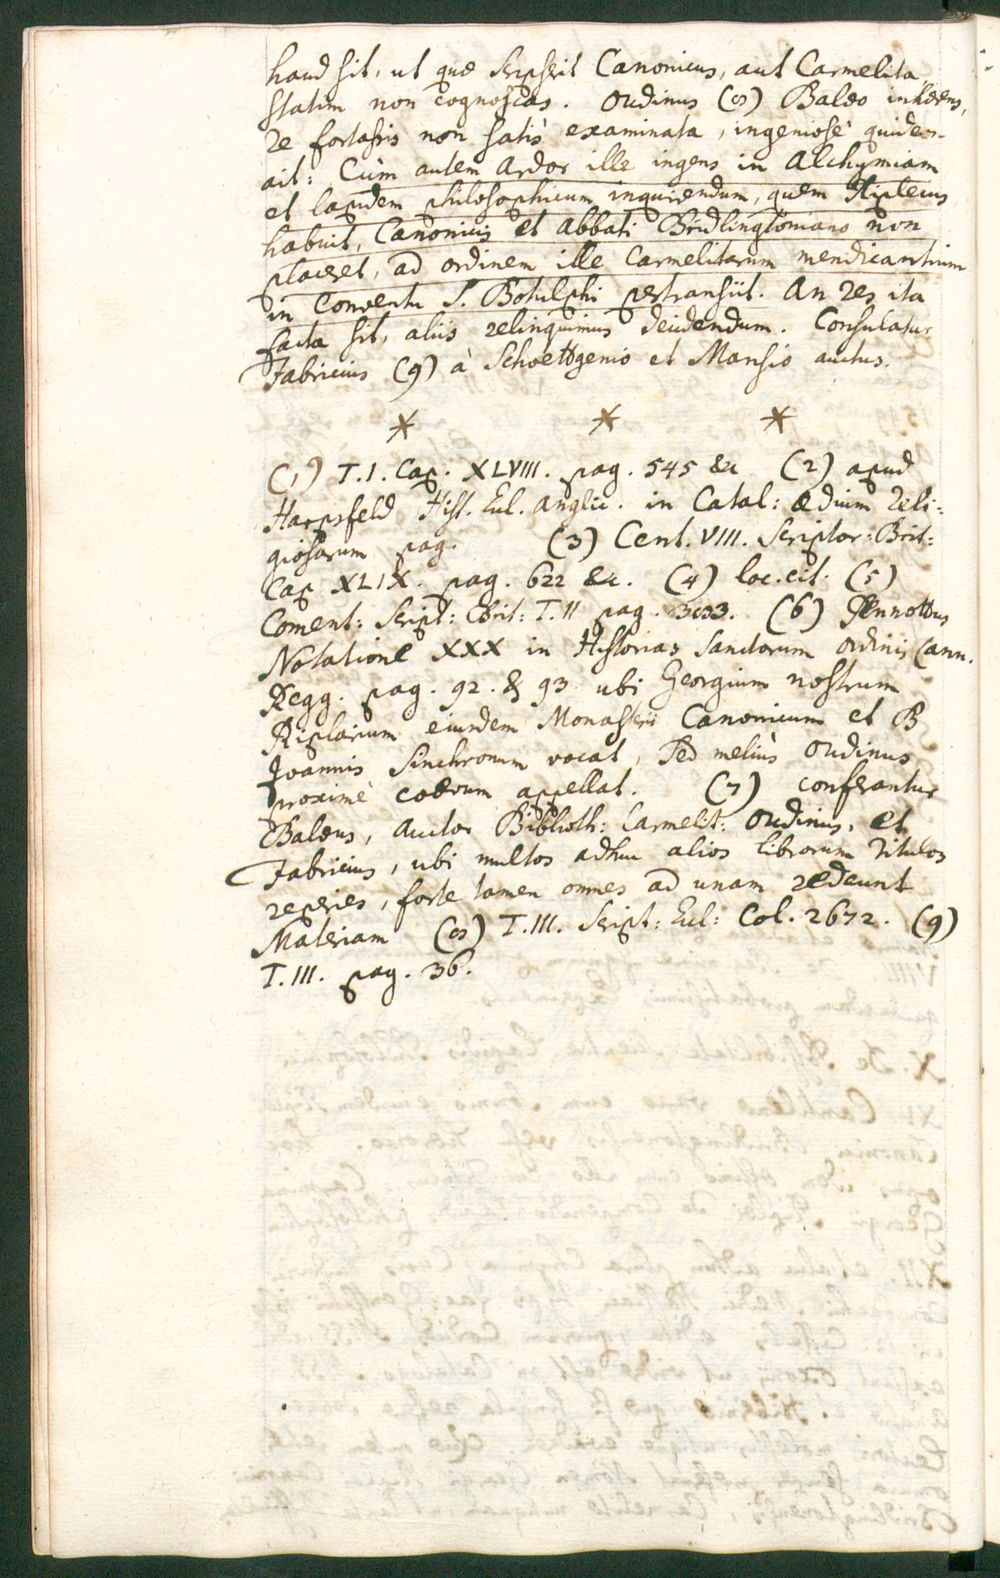 haud sit, ut quæ scripserit Canonicus, aut Carmelita
statim non cognoscas. Oudinus (8) Baleo inhærens,
re fortassis non satis examinata, ingeniosè quidem
ait: Cùm autem Ardor ille ingens in Alchymiam
et lapidem philosophicum inquirendum, quem Ripleus
habuit, Canonicis et Abbati Bridlingtoniano non
placeret, ad ordinem ille Carmelitarum mendicantium
in Conventu S. Botulphi pertransiit. An res ita
facta sit, aliis relinquimus decidendum. Consulatur
Fabricius (9) à Schoettgenio et Mansio auctus.
* * *
(1) T.I. Cap. XLVIII. pag. 545 &c (2) apud
Harpsfeld Hist. Eccl. Anglic. in Catal: Ædium Reli-
giosarum pag. (3) Cent. VIII. Scriptor: Brit:
Cap XLIX. pag. 622 &c. (4) loc. cit. (5)
Coment: Script: Brit: T. II pag. (6) Pennottus
Notatione XXX in Historias Sanctorum ordinis Cann.
Regg. pag. 92. & 93 ubi Georgium nostrum
Riplarium eiusdem Monasterii Canonicum et B
Joannis Sinchronum vocat, Sed meliùs Oudinus
proximè coævum appellat. (7) conferantur
Baleus, Auctor Biblioth: Carmelit: Oudinus, et
Fabricius, ubi multos adhuc alios librorum titulos
reperies, forte tamen omnes ad unam redeunt
Materiam (8) T. III. Script: Eccl: Col. 2672. (9)
T. III. pag. 36.